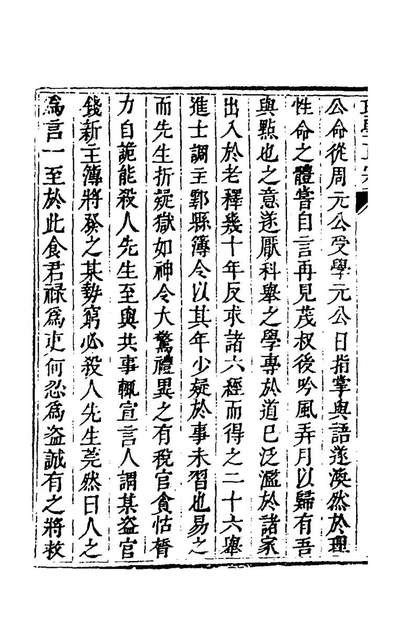 公命從周元公受學元公日指掌與語遂渙然於理
性命之體嘗自言再見茂叔後吟風弄月以歸有吾
與點也之意遂厭科舉之學專於道已泛濫於諸家
出入於老釋幾十年反求諸六經而得之二十六舉
進士調主鄠縣簿令以其年少疑於事未習也易之
而先生折疑獄如神令大驚禮異之有稅官貪怙膂
力自詭能殺人先生至與共事輒宣言人謂某盜官
錢新主簿將發之某勢窮必殺人先生莞然曰人之
為言一至於此食君祿為吏何忍為盜誠有之將救